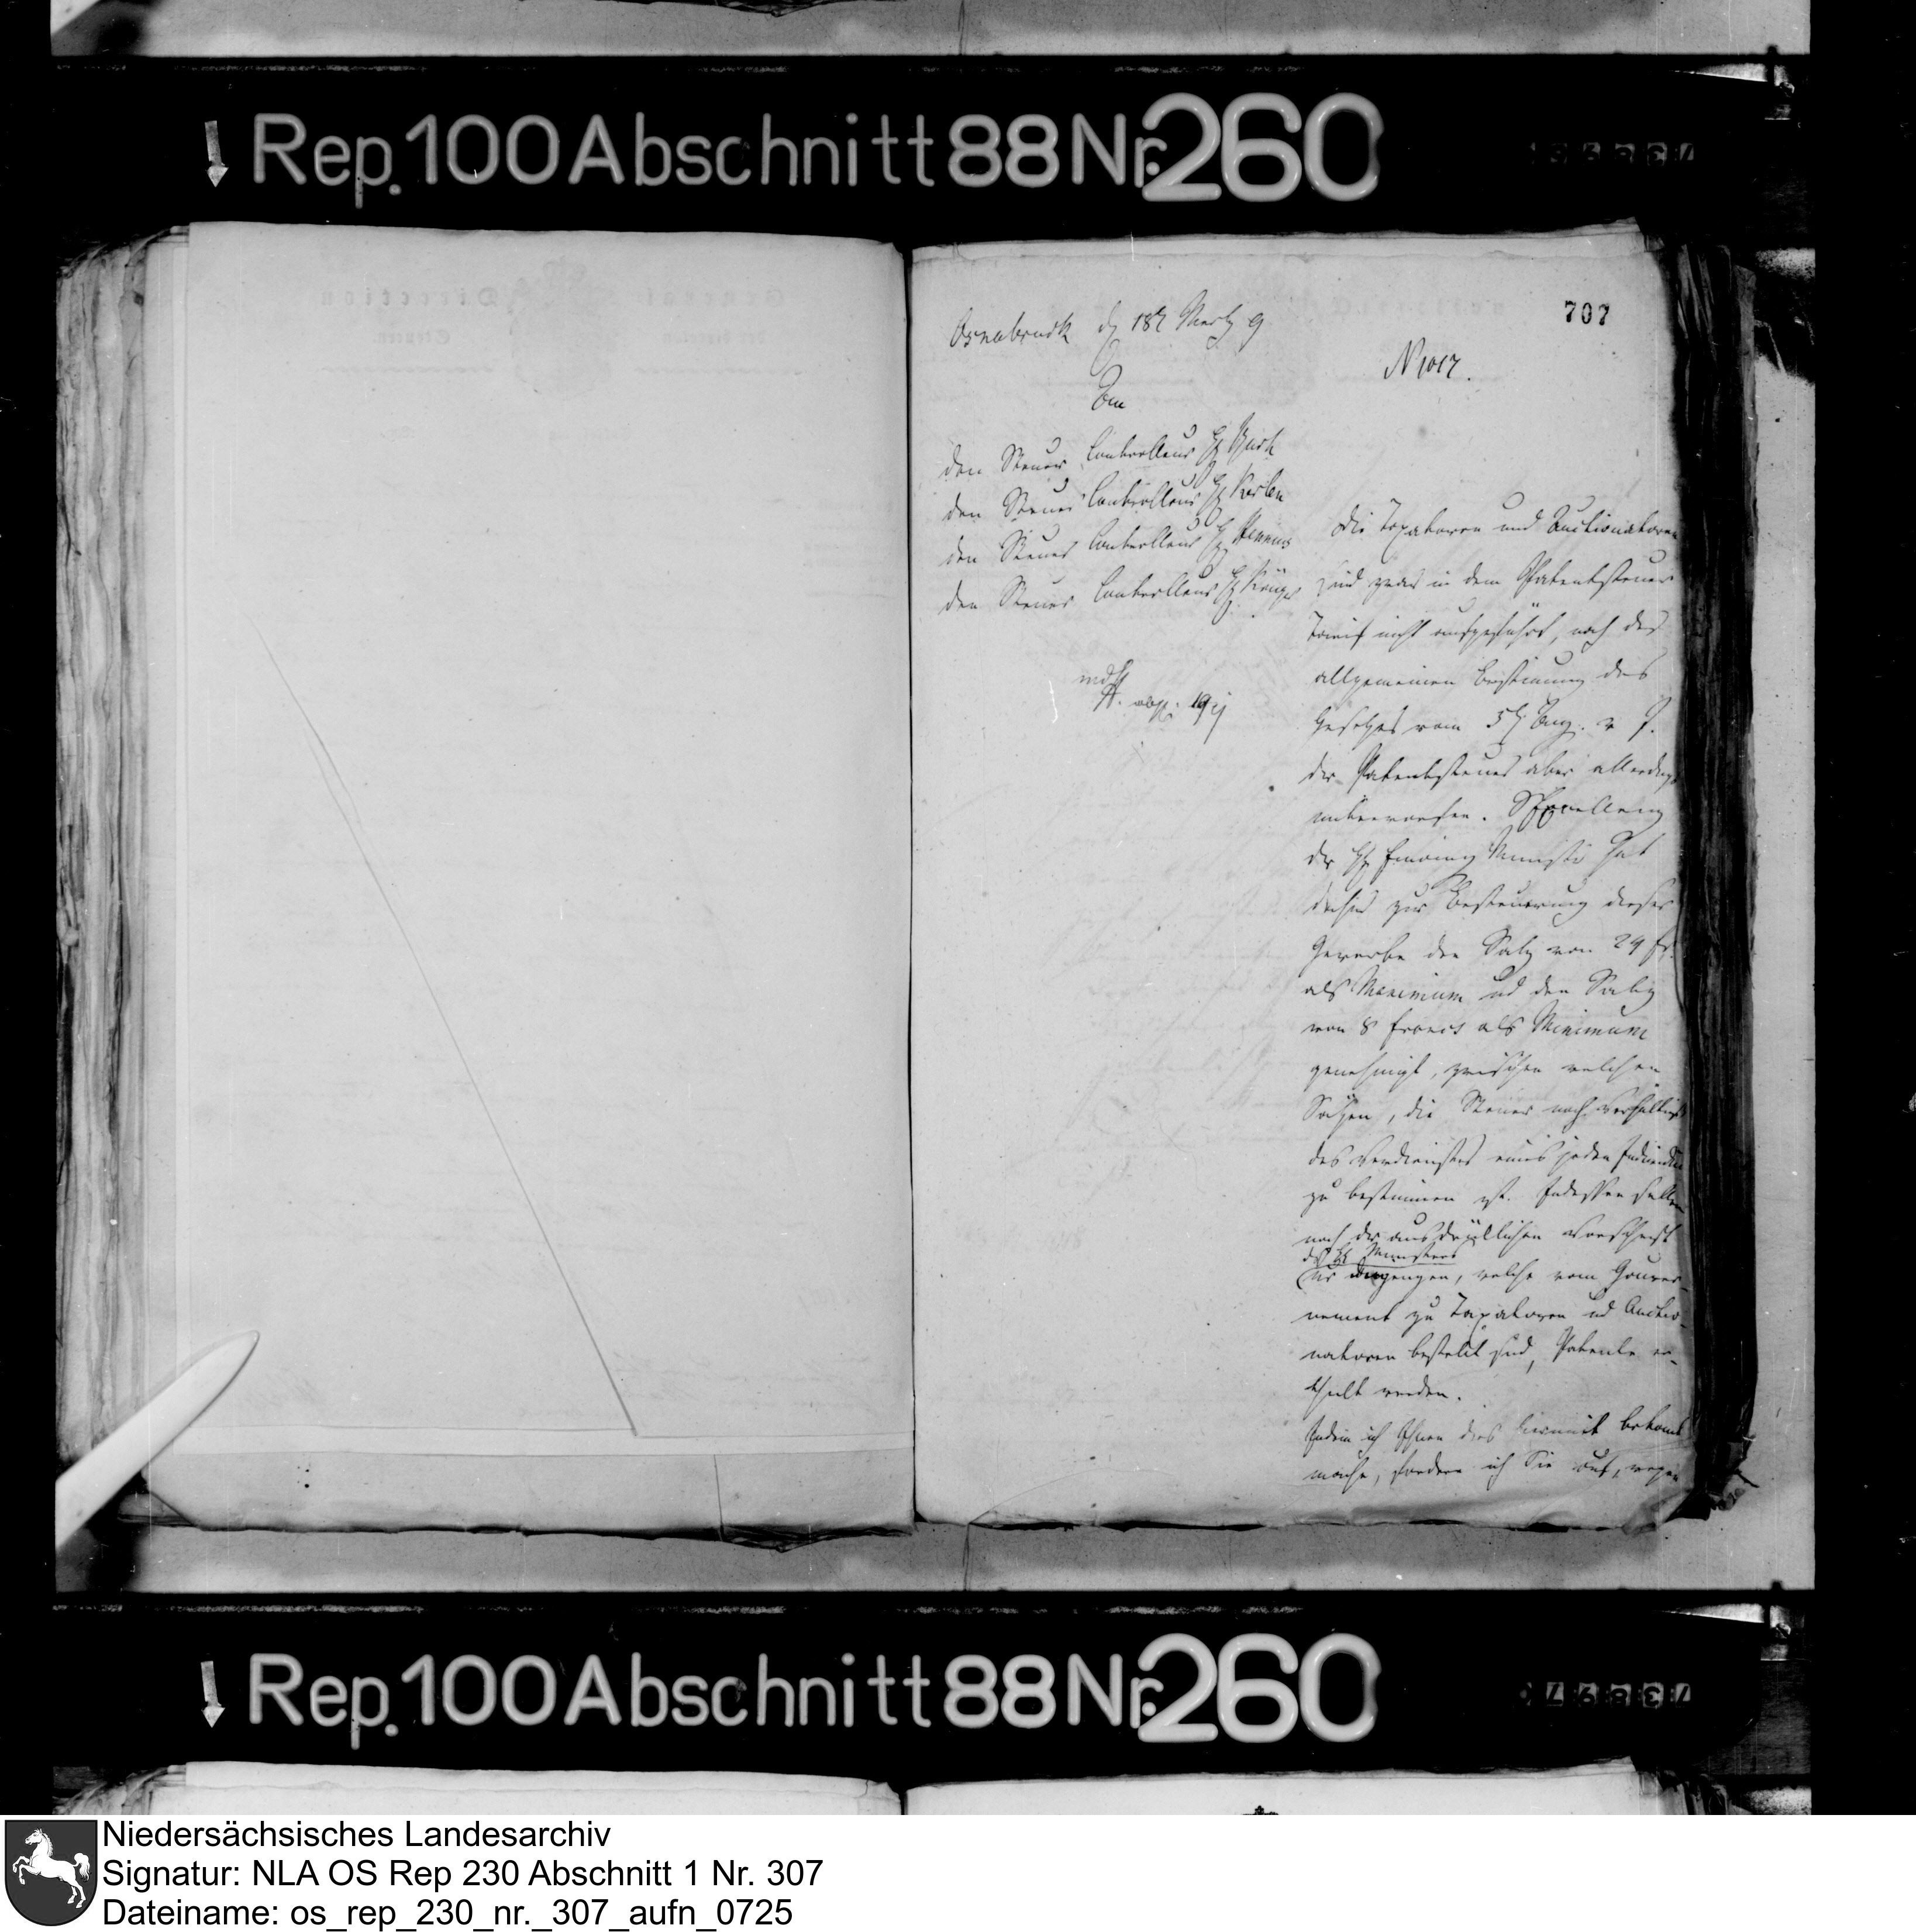 Rep. 100 Abschnitt 88 Nr. 260
707
Osnabruck d 18t Mertz 9
N 1017.
An
den Steuer Controlleur H
den Steuer Controlleur H Kerlen
den Steuer Controlleur H
den Steuer Controlleur H Krüger
mdh
abg. 19
Die Taxatoren und Auctionatoren
sind zwar in dem Patentsteuer
Tarif nicht aufgeführt, nach der
allgemeinen Bestimung des
Gesetzes vom 5t Aug. v. J.
der Patentsteuer aber allerdings
unterworfen. S. Excellenz
der H. Finanz Minister hat
daher zur Besteuerung dieser
Gewerbe den Satz von 24 fr.
als Maximum und den Satz
von 8 francs als Minimum
genehmigt, zwischen welchen
Sätzen, die Steuer nach Verhältniß
des Verdienstes eines jeden Individui
zu bestimmen ist. Indessen sollen
nach der ausdrücklichen Vorschrift
des H. Ministers
nur denjenigen, welche vom Gouver-
nement zu Taxatoren und Auctio-
natoren bestellt sind, Patente er-
theilt werden.
Indem ich Ihnen dies hiermit bekannt
mache, fordere ich Sie auf, wegen
Rep. 100 Abschnitt 88 Nr. 260
73897
Niedersächsisches Landesarchiv
Signatur: NLA OS Rep 230 Abschnitt 1 Nr. 307
Dateiname: os_rep_230_nr._307_aufn_0725